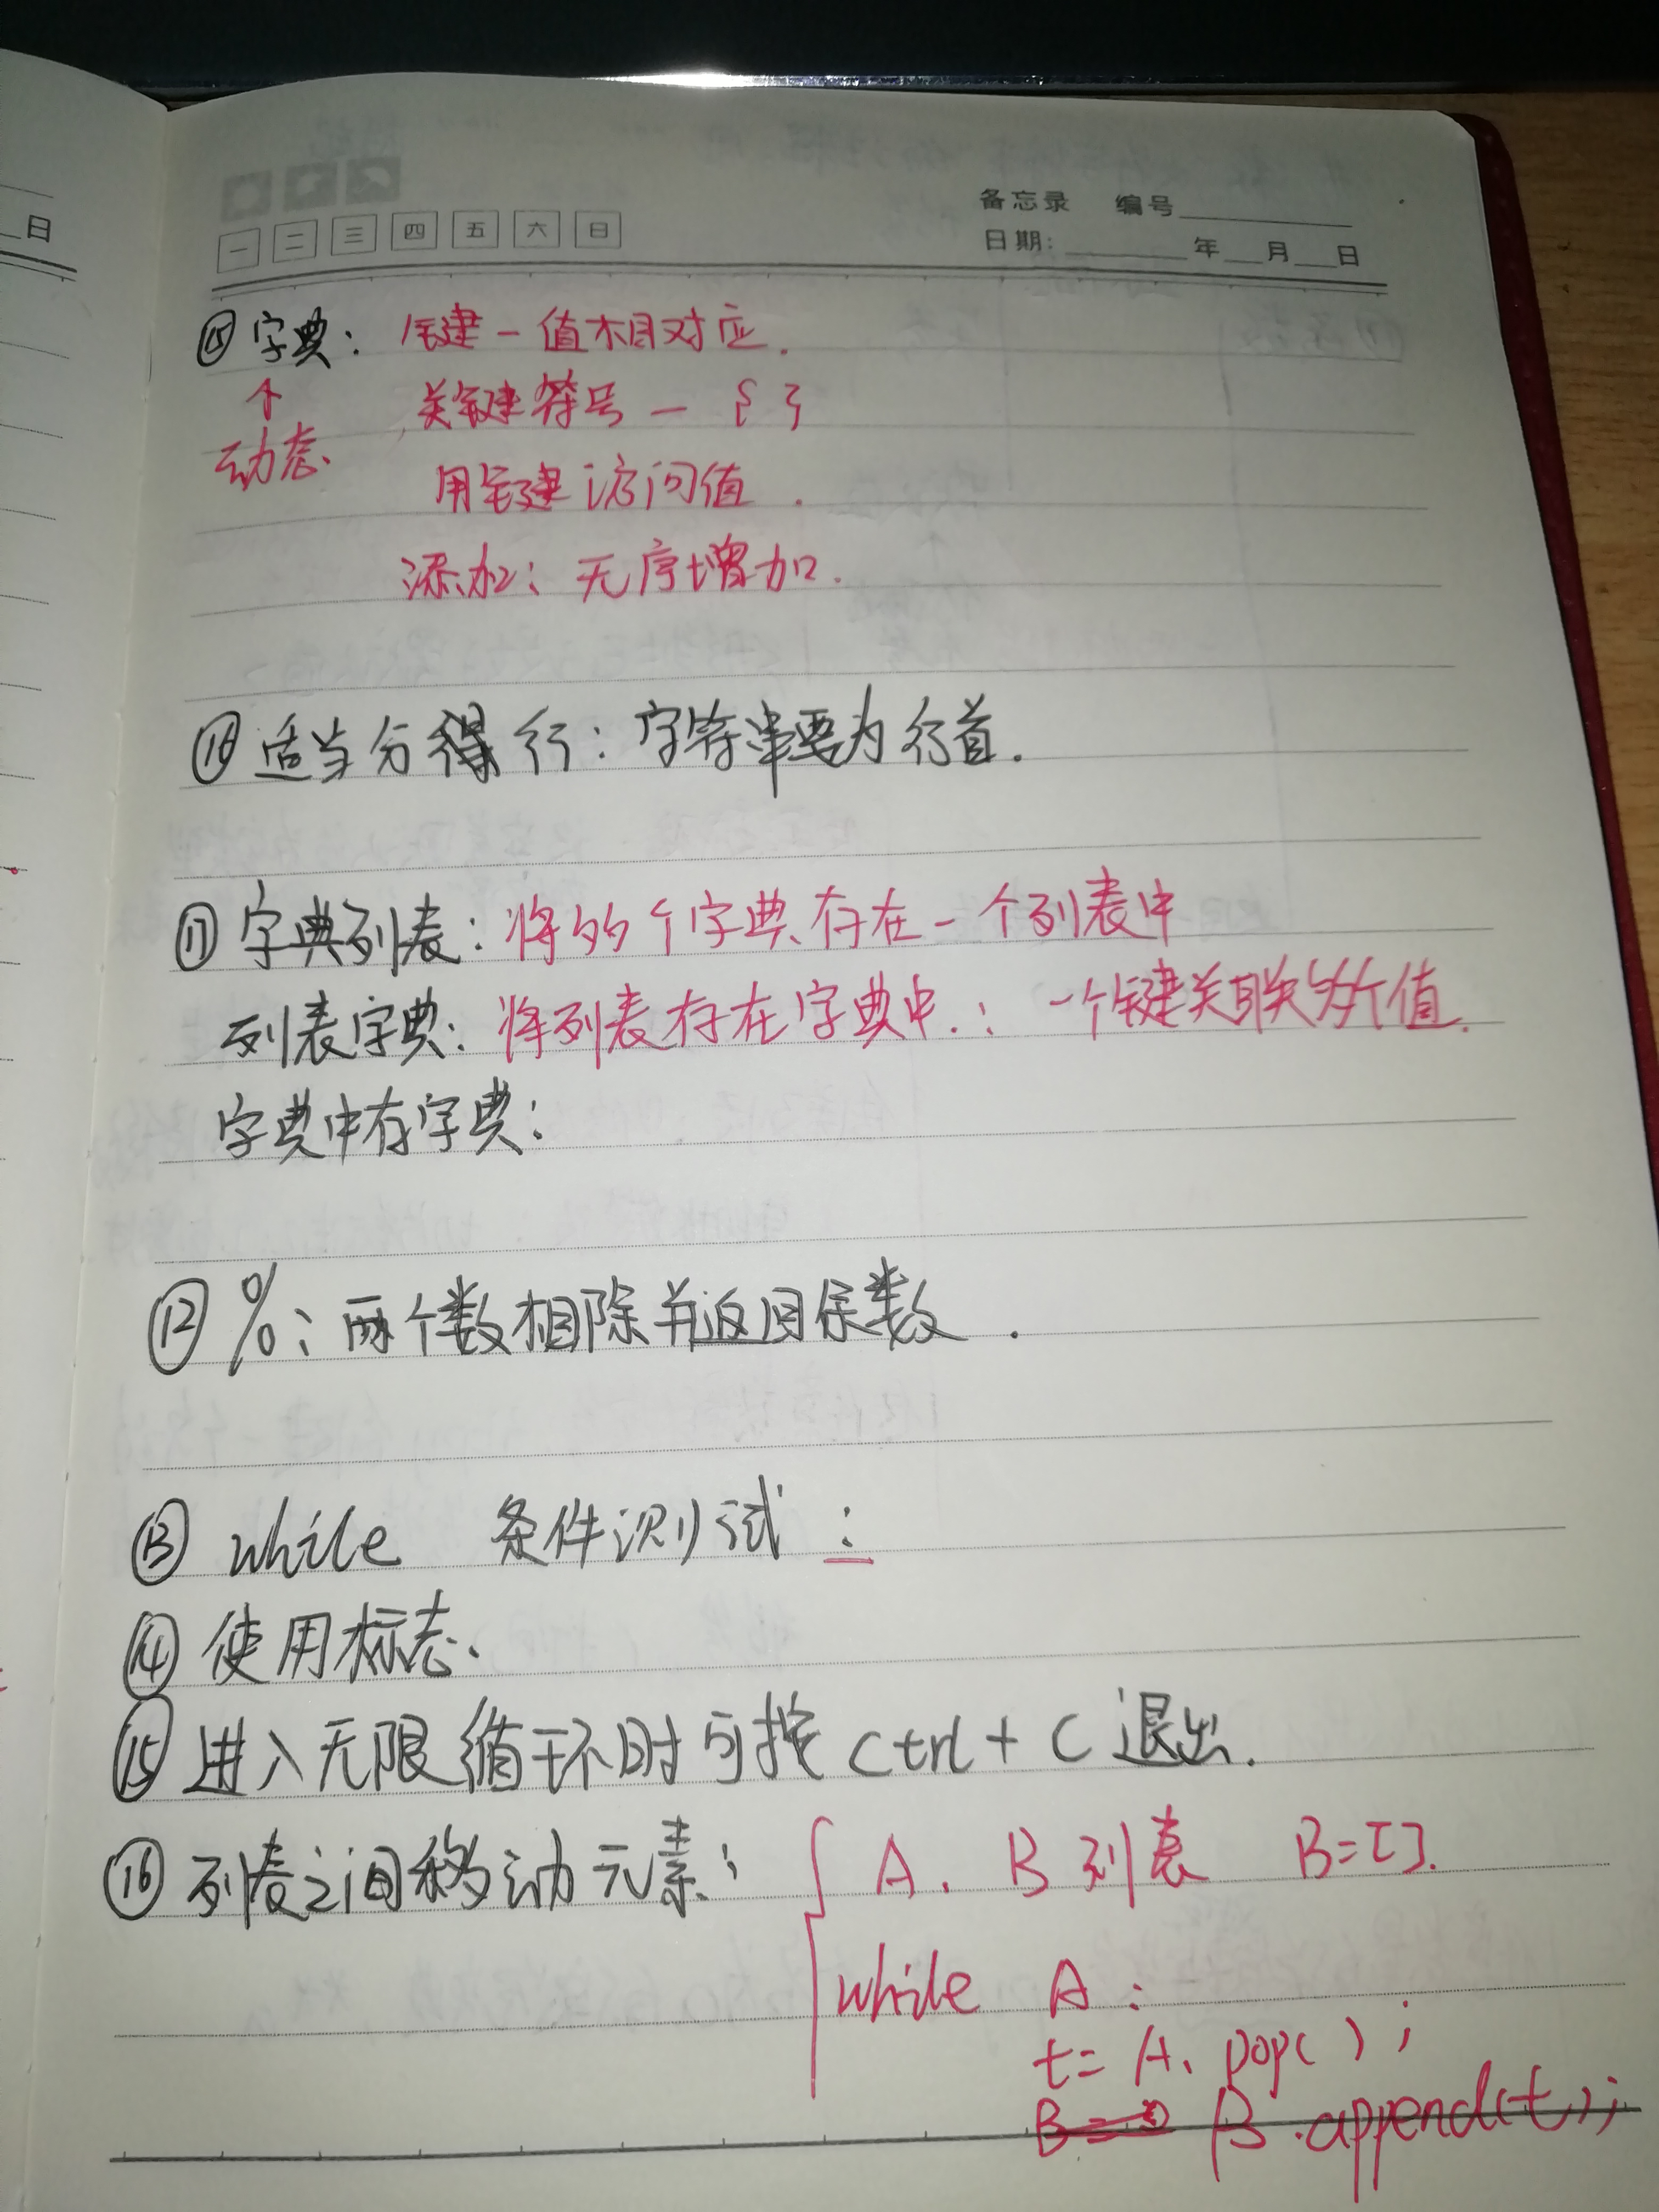 日
备忘录 编号
一 二 三 四 五 六 日
日期: 年 月 日
⑮ 字典: 键-值相对应.
↑ 关键符号 — { }
动态 用键访问值.
添加: 无序增加.
适当分得行: 字符串要为行首.
⑪ 字典列表: 将多个字典存在一个列表中
列表字典: 将列表存在字典中.: 一个键关联多个值.
字典中存字典:
⑫ %: 两个数相除并返回余数.
⑬ while 条件测试 :
⑭ 使用标志.
⑮ 进入无限循环时可按 Ctrl + C 退出.
⑯ 列表之间移动元素: A、B列表 B=[].
while A:
t= A.pop();
B= B.append(t);